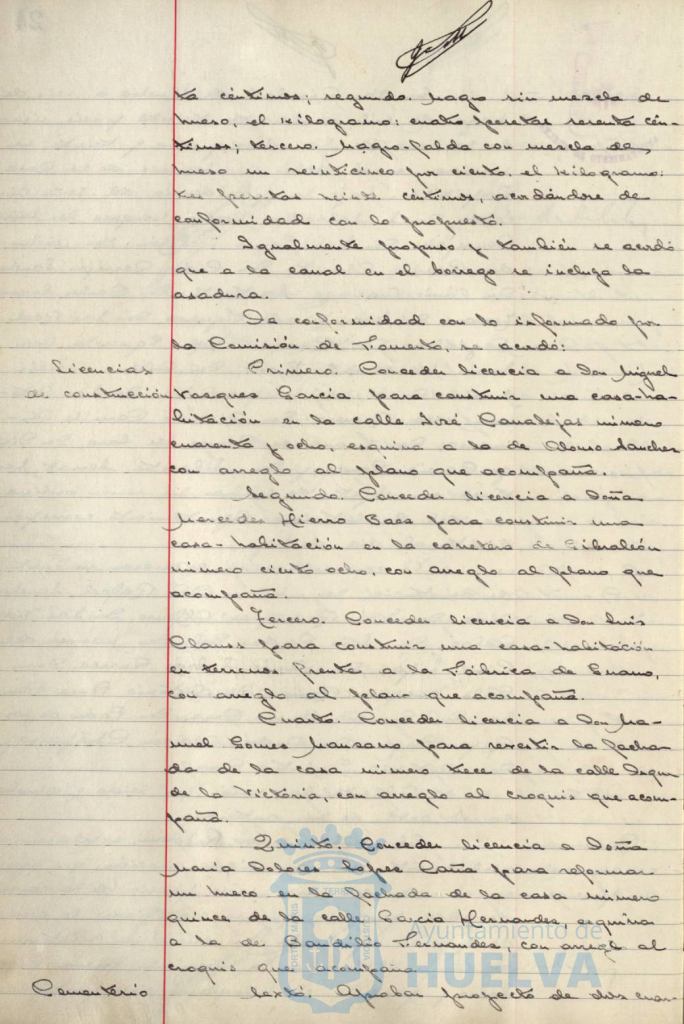 ta céntimos; segundo. Magro sin mezcla de
hueso, el kilogramo: cuatro pesetas sesenta cén-
timos; tercero. Magro-falda con mezcla de
hueso un veinticinco por ciento, el kilogramo:
tres pesetas veinte céntimos, acordándose de
conformidad con lo propuesto.
Igualmente propuso y también se acordó
que a la canal en el borrego se incluya la
asadura.
De conformidad con lo informado por
la Comisión de Fomento, se acordó:
Licencias
de construcción
Primero. Conceder licencia a Don Miguel
Vasques García para construir una casa-ha-
bitación en la calle José Canalejas número
cuarenta y ocho, esquina a la de Alonso Sanchez
con arreglo al plano que acompaña.
Segundo. Conceder licencia a Doña
Mercedes Hierro Baea para construir una
casa-habitación en la carretera de Gibraleón
número ciento ocho, con arreglo al plano que
acompaña.
Tercero. Conceder licencia a Don Luis
Clauss para construir una casa-habitación
en terrenos frente a la Fábrica de Guano,
con arreglo al plano que acompaña.
Cuarto. Conceder licencia a Don Ma-
nuel Gomes Manzano para revestir la facha-
da de la casa número trece de la calle Duque
de la Victoria, con arreglo al croquis que acom-
paña.
Quinto. Conceder licencia a Doña
María Dolores Lopez Caña para reformar
un hueco en la fachada de la casa número
quince de la calle García Hernandez, esquina
a la de Baudilio Fernandez, con arreglo al
croquis que acompaña
Cementerio
Sexto. Aprobar proyecto de dos cuar-
Ayuntamiento de
HUELVA